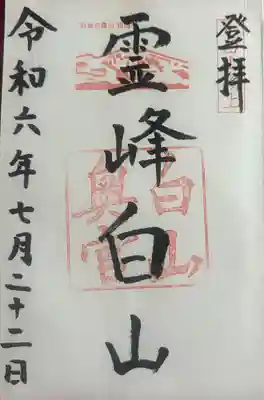 登拝
霊峰白山
白山
奥宮
令和六年七月二十二日